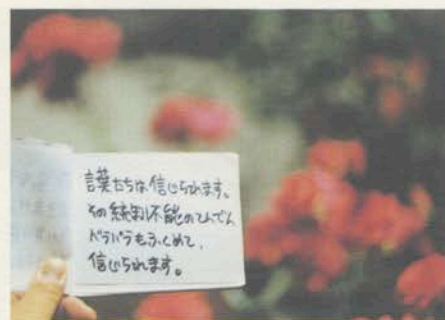 言葉たちは信じられます。
その統制不能のてんでん
バラバラもふくめて、
信じられます。